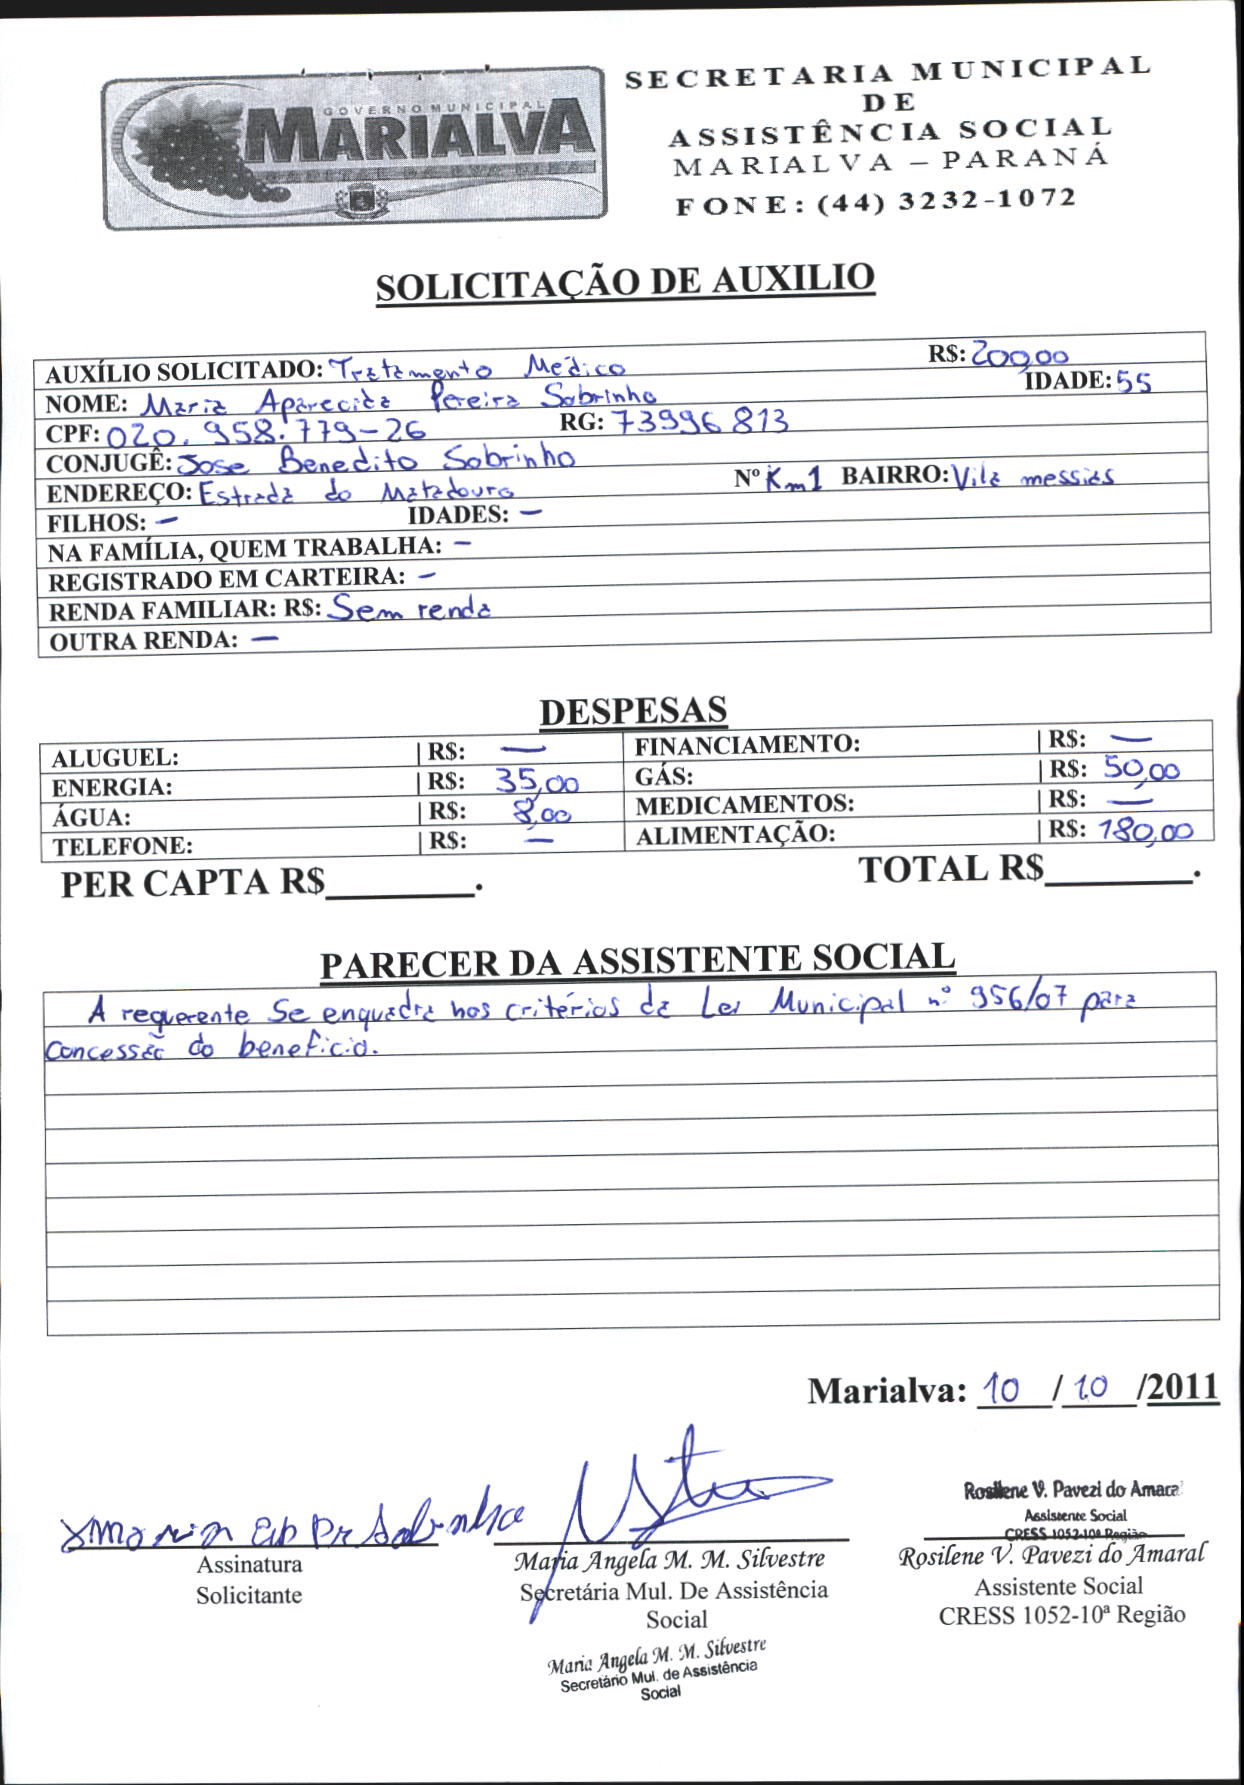 GOVERNO MUNICIPAL
MARIALVA
CAPITAL DA UVA FINA
SECRETARIA MUNICIPAL
DE
ASSISTÊNCIA SOCIAL
MARIALVA – PARANÁ
FONE: (44) 3232-1072
SOLICITAÇÃO DE AUXILIO
AUXÍLIO SOLICITADO: Tratamento Médico R$: 200,00
NOME: Maria Aparecida Pereira Sobrinho IDADE: 55
CPF: 020.958.779-26 RG: 73996813
CONJUGÊ: Jose Benedito Sobrinho
ENDEREÇO: Estrada do Matadouro Nº Km1 BAIRRO: Vila messias
FILHOS: – IDADES: –
NA FAMÍLIA, QUEM TRABALHA: –
REGISTRADO EM CARTEIRA: –
RENDA FAMILIAR: R$: Sem renda
OUTRA RENDA: –
DESPESAS
ALUGUEL: | R$: — FINANCIAMENTO: | R$: —
ENERGIA: | R$: 35,00 GÁS: | R$: 50,00
ÁGUA: | R$: 8,00 MEDICAMENTOS: | R$: —
TELEFONE: | R$: — ALIMENTAÇÃO: | R$: 180,00
PER CAPTA R$________. TOTAL R$________.
PARECER DA ASSISTENTE SOCIAL
A requerente se enquadra nos critérios da Lei Municipal nº 956/07 para
concessão do beneficio.
Marialva: 10 / 10 /2011
Assinatura
Solicitante
Maria Angela M. M. Silvestre
Secretária Mul. De Assistência
Social
Maria Angela M. M. Silvestre
Secretário Mul. de Assistência
Social
Rosilene V. Pavezi do Amaral
Assistente Social
CRESS 1052-10ª Região
Rosilene V. Pavezi do Amaral
Assistente Social
CRESS 1052-10ª Região